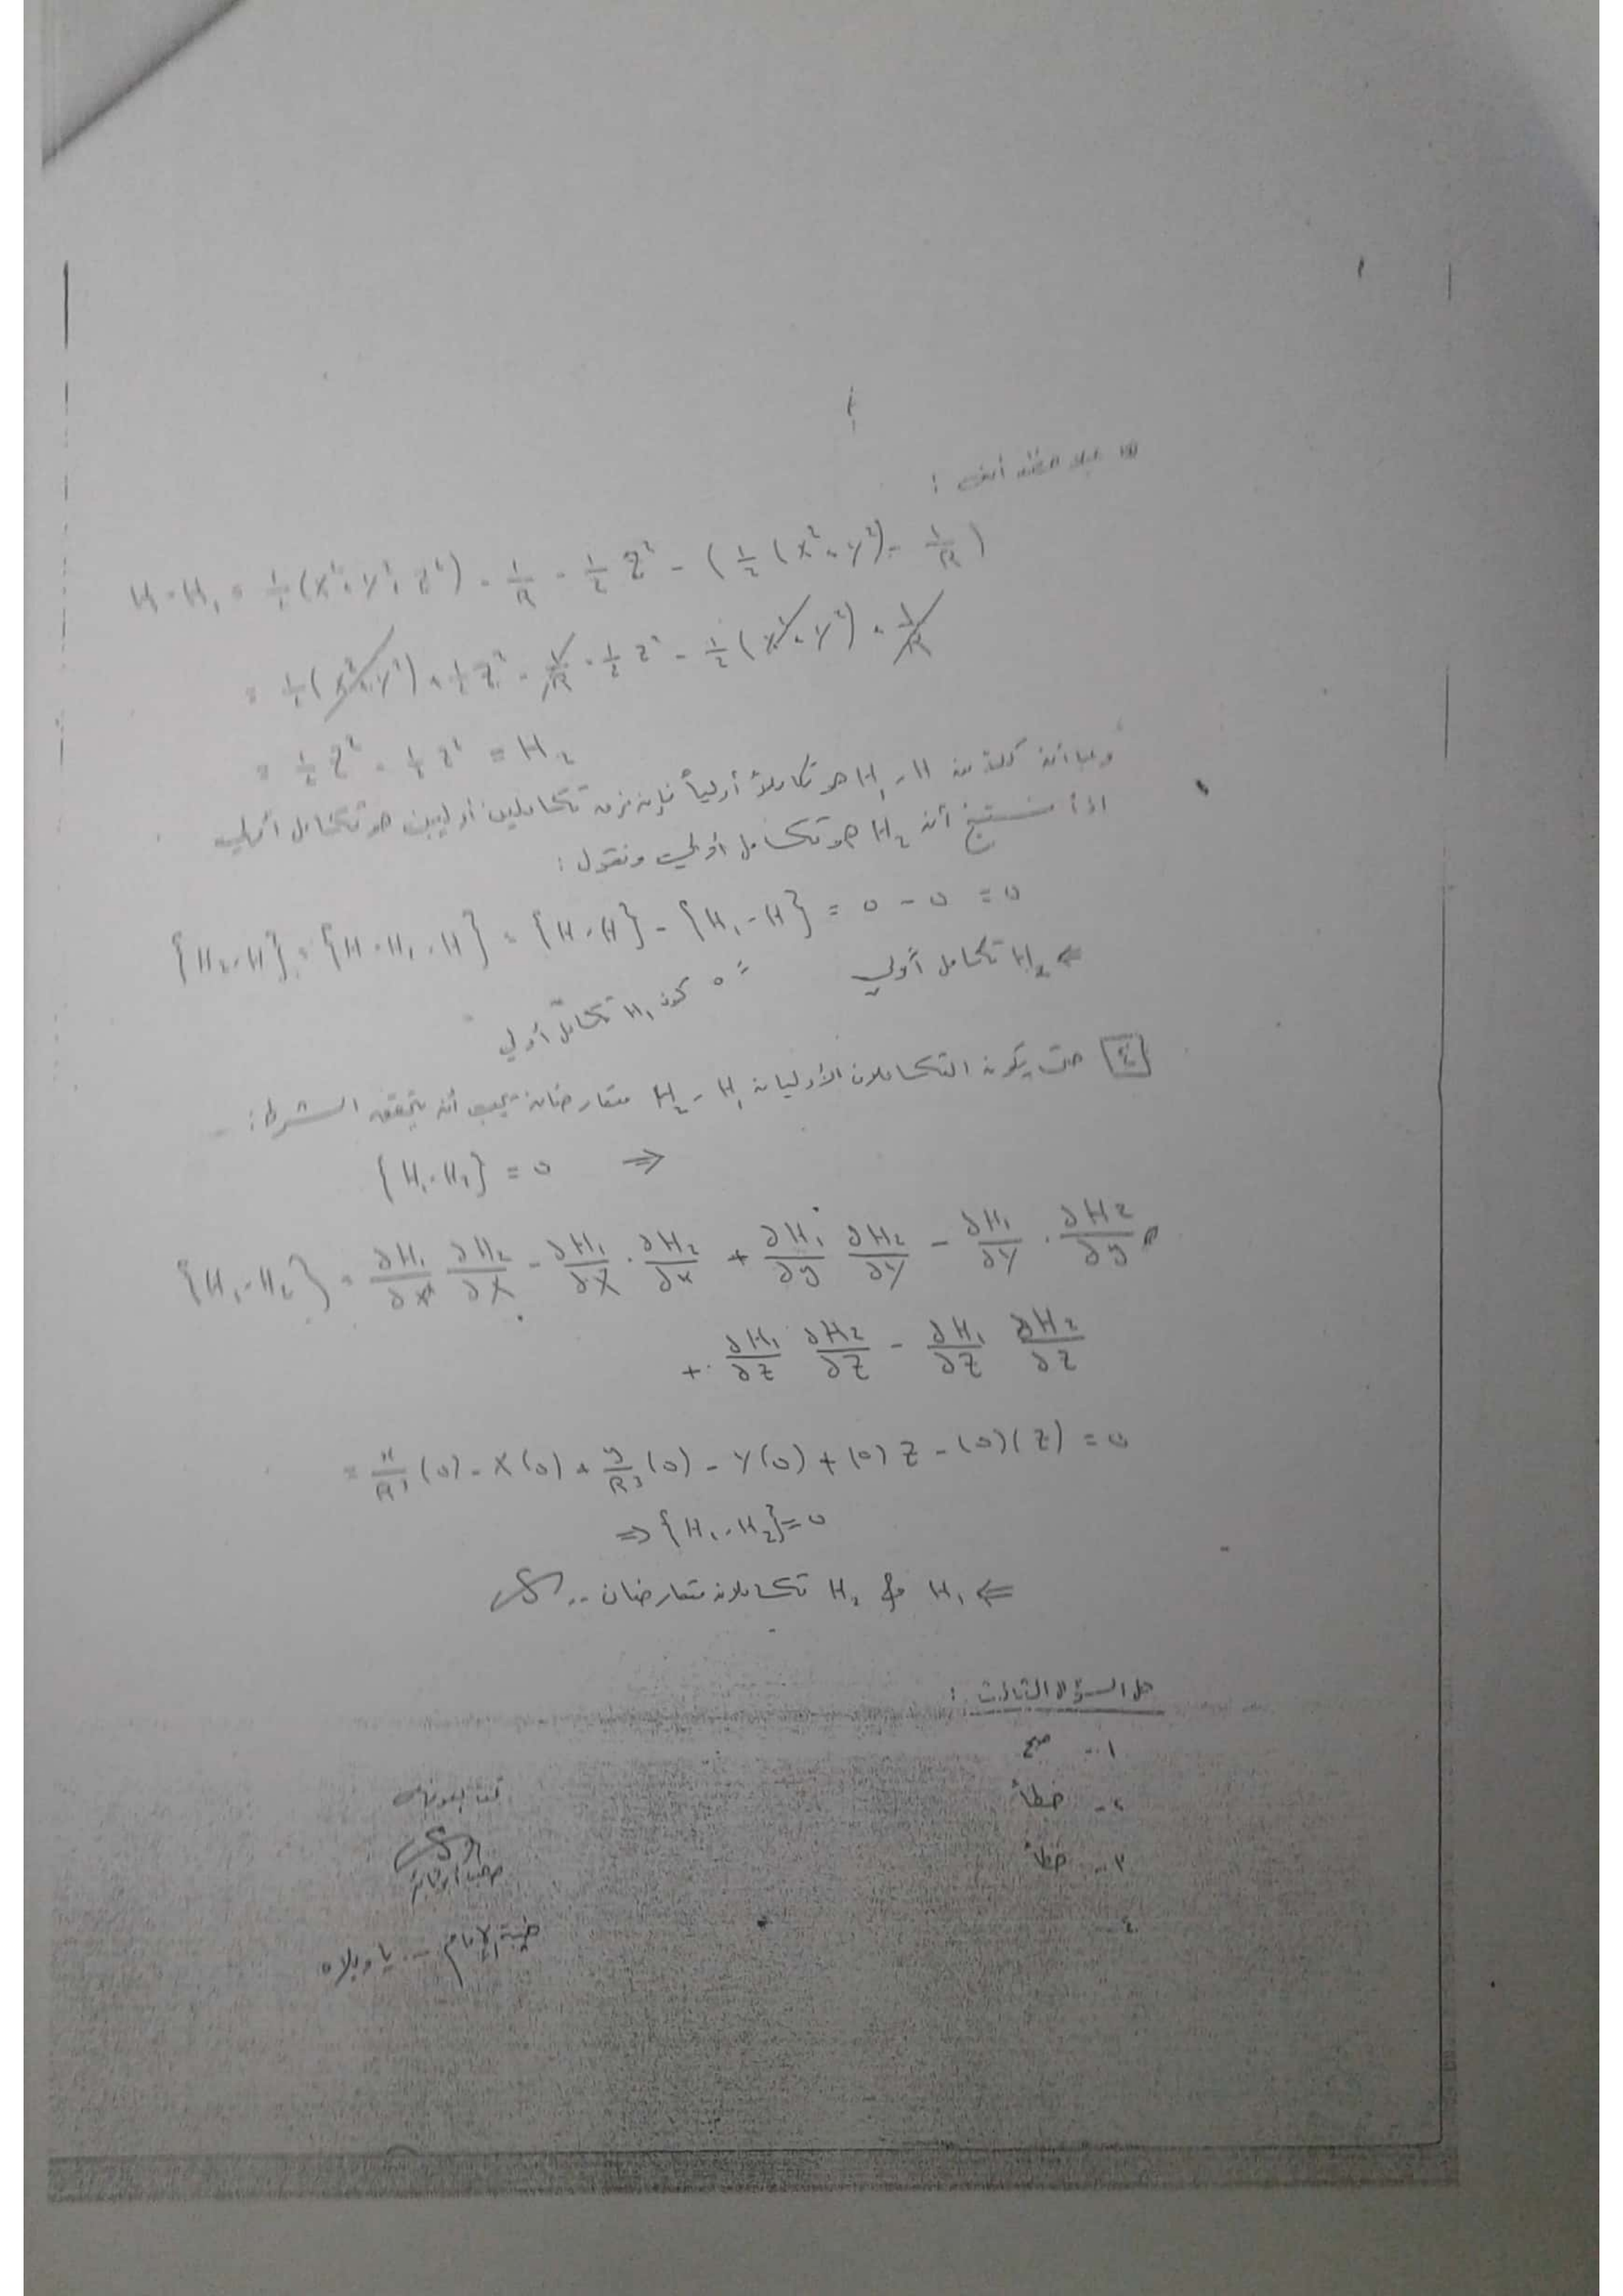 نلاحظ أن :
H - H₁ = 1/2 (X² + Y² + Z²) - 1/R - 1/2 z² - (1/2 (X² + Y²) - 1/R)
= 1/2 (X² + Y²) + 1/2 Z² - 1/R - 1/2 z² - 1/2 (X² + Y²) + 1/R
= 1/2 Z² - 1/2 z² = H₂
وبما أن كلاً من H , H₁ هو تكاملاً أولياً فإن فرق تكاملين أوليين هو تكامل أولي
اذاً نستنتج أن H₂ هو تكامل أولي ونقول :
{H₂ , H} = {H - H₁ , H} = {H , H} - {H₁ , H} = 0 - 0 = 0
⇐ H₂ تكامل أولي
0 كون H₁ تكامل أولي
[٤] حتى يكون التكاملان الأوليان H₁ , H₂ متعارضان يجب أن يتحقق الشرط :
{H₁ , H₂} = 0 ⇒
{H₁ , H₂} = ∂H₁/∂x ∂H₂/∂X - ∂H₁/∂X . ∂H₂/∂x + ∂H₁/∂y ∂H₂/∂Y - ∂H₁/∂Y . ∂H₂/∂y
+ ∂H₁/∂z ∂H₂/∂Z - ∂H₁/∂Z ∂H₂/∂z
= x/R³ (0) - X (0) + y/R³ (0) - Y (0) + (0) Z - (0) (z) = 0
⇒ {H₁ , H₂} = 0
⇐ H₁ و H₂ تكاملان متعارضان ..
حل السؤال الثالث :
١ - صح
٢ - خطأ
٣ - خطأ
٤ -